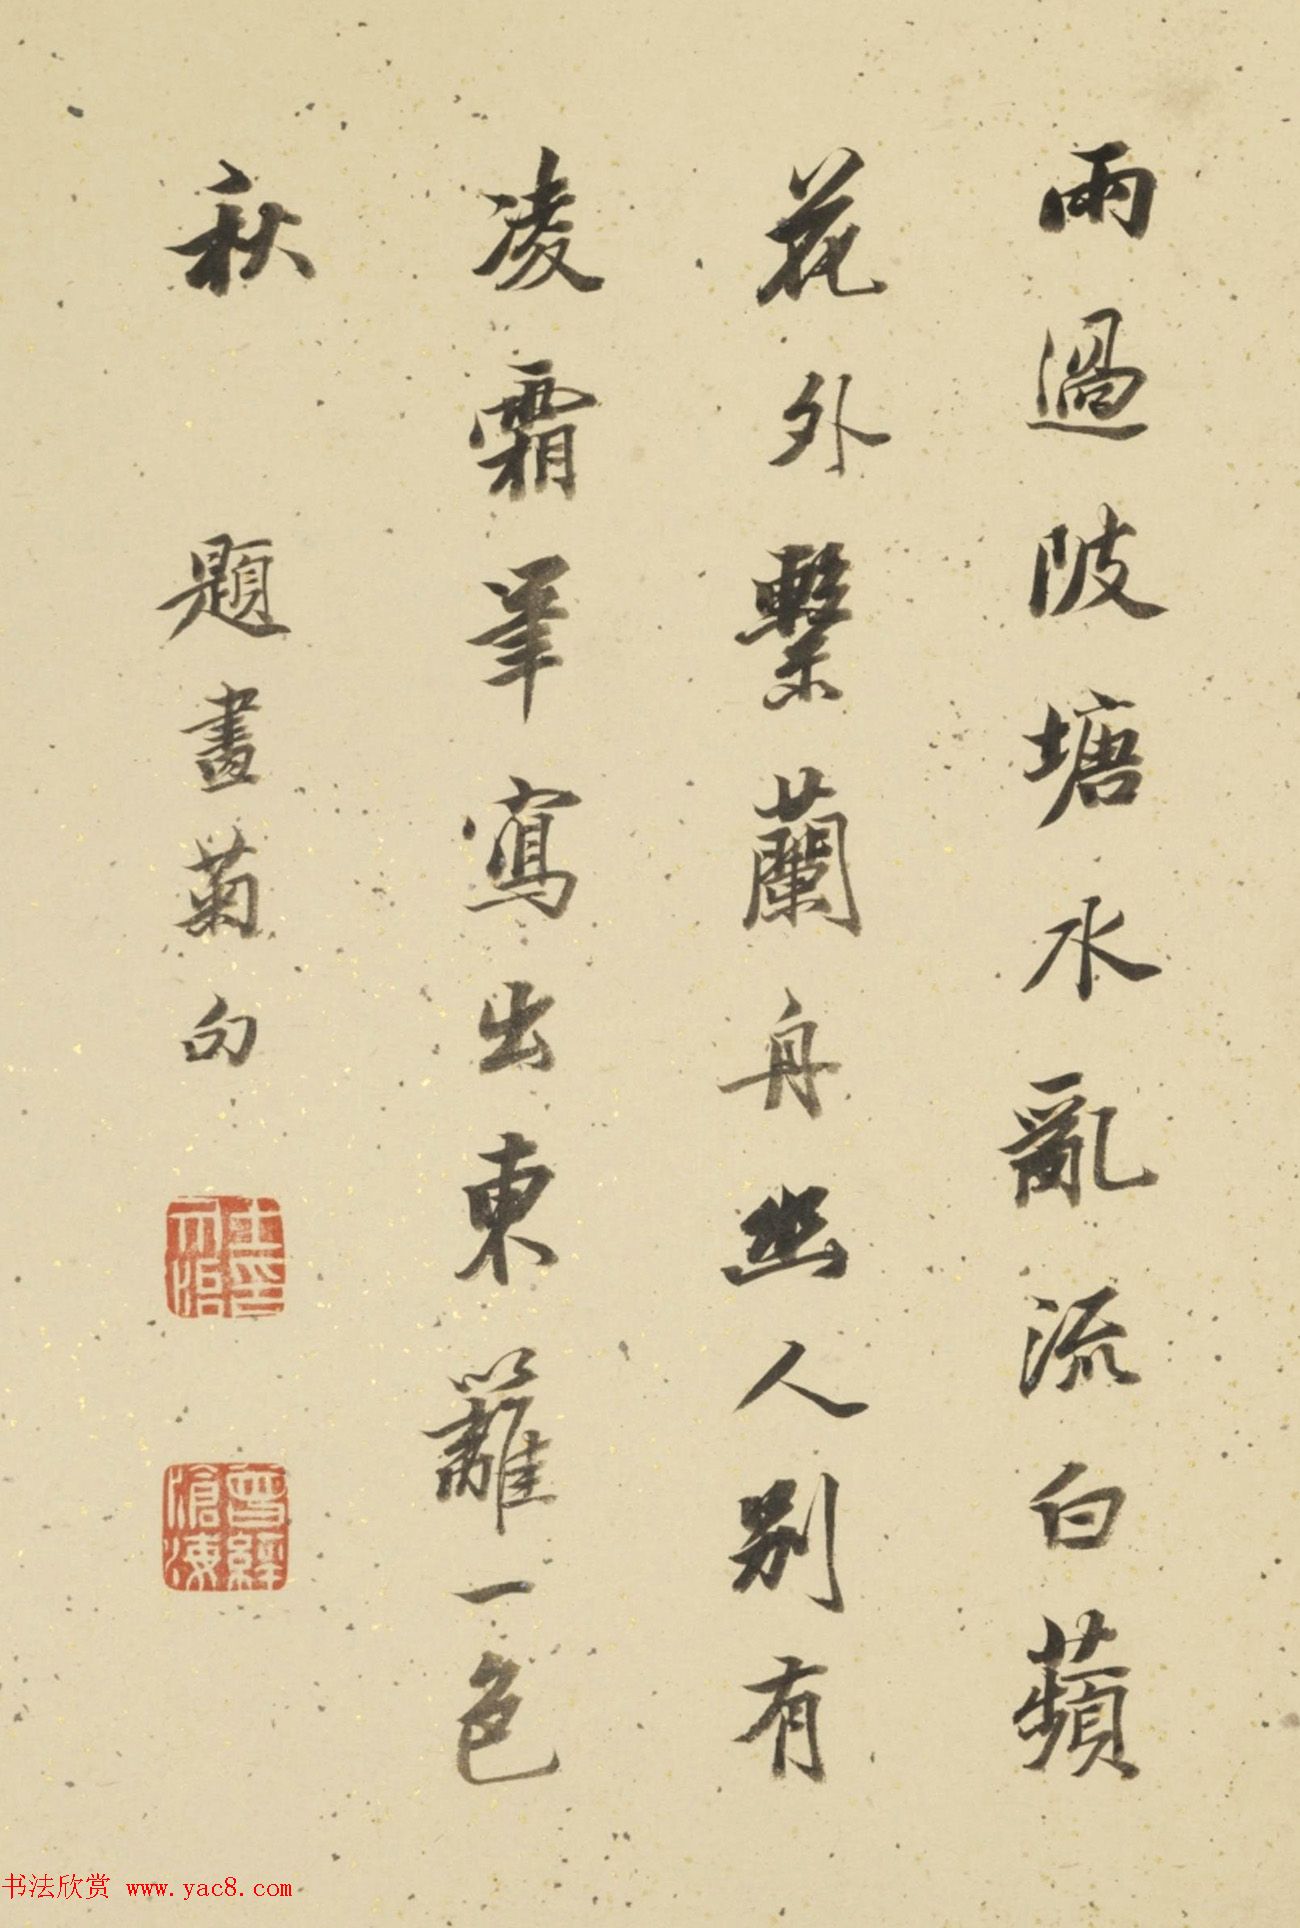 雨過陂塘水亂流白蘋
花外繫蘭舟幽人別有
凌霜筆寫出東籬一色
秋
題畫菊句
曾經滄海
书法欣赏 www.yac8.com